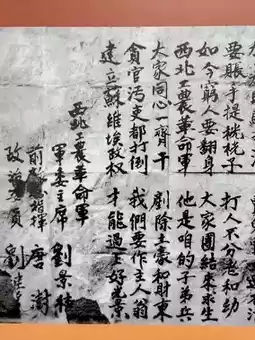 要賬手提桄桄子 打人不分老和幼
如今窮人要翻身 大家團結來求生
西北工農革命軍 他是咱的子弟兵
大家同心一齊干 剷除土豪和財東
貪官污吏都打倒 我們要作主人翁
建立蘇維埃政权 才能過上好光景
西北工農革命軍
軍委主席 劉景桂
前 指揮 唐澍
政治委員 劉